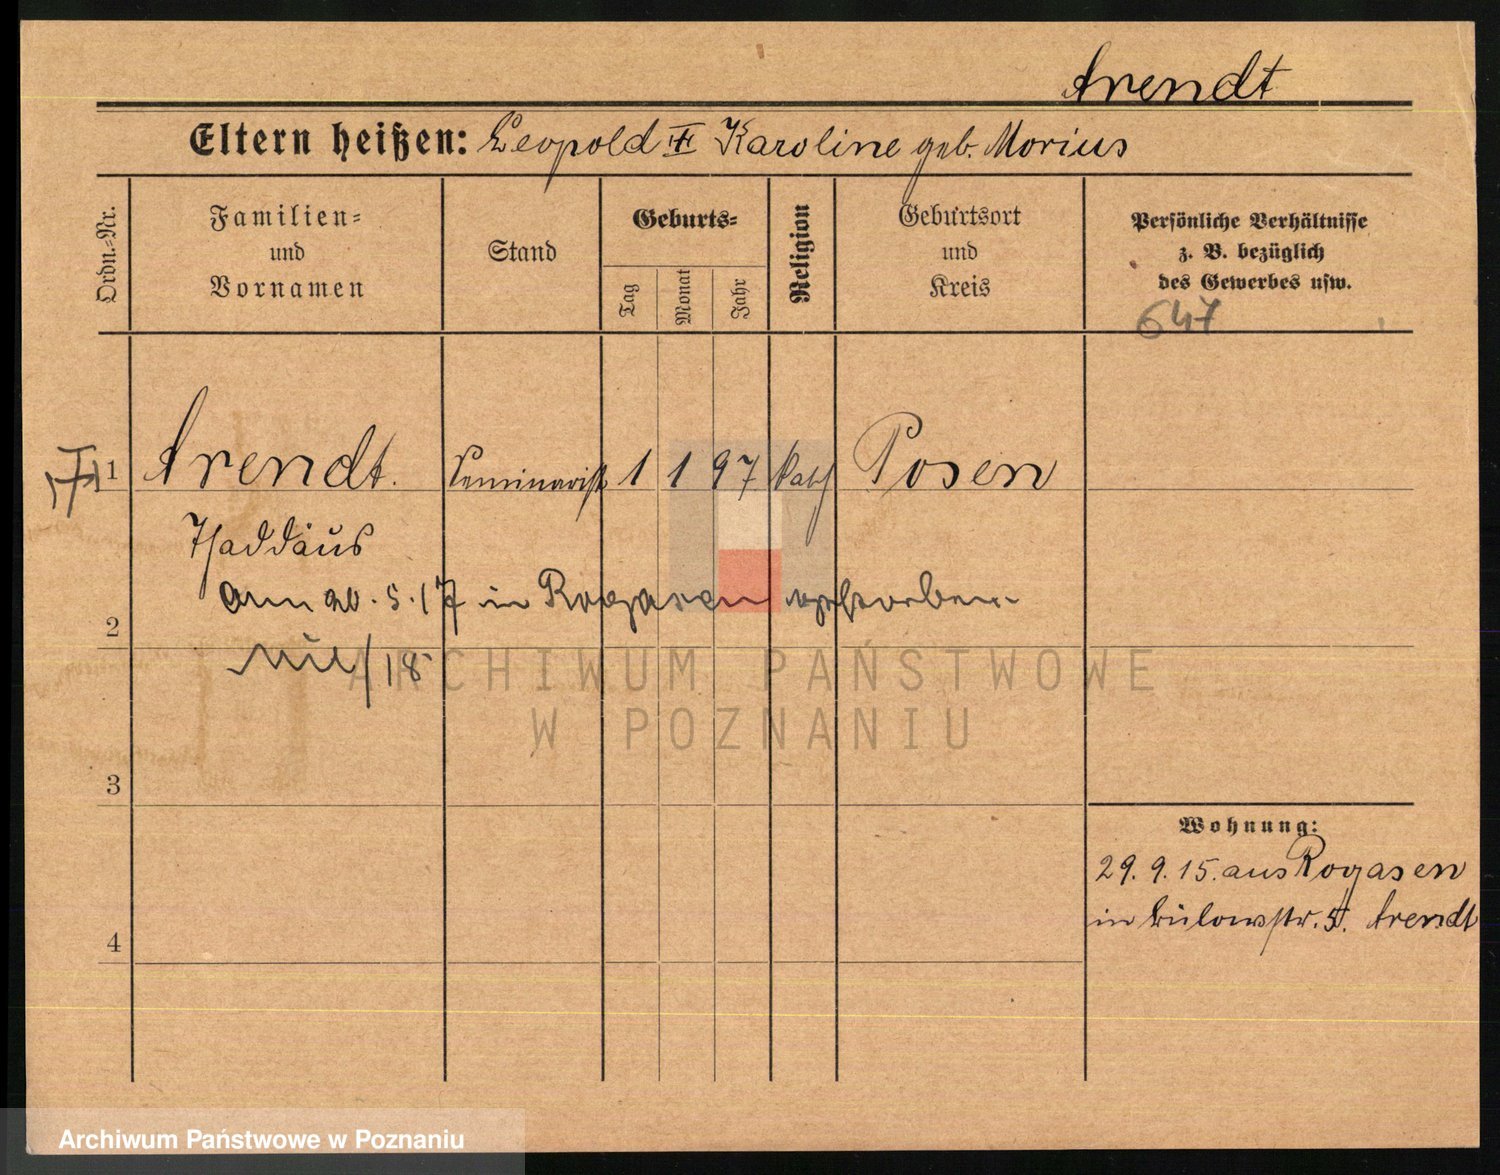 Arendt
Eltern heißen: Leopold † Karoline geb. Morius
Ordn.=Nr.
Familien=
und
Vornamen
Stand
Geburts=
Tag
Monat
Jahr
Religion
Geburtsort
und
Kreis
Persönliche Verhältnisse
z. B. bezüglich
des Gewerbes usw.
647
† 1 Arendt. Seminarist 1 1 97 kath Posen
Thaddäus
am 20. 5. 17 in Rogasen verstorben.
2
/18
3
4
Wohnung:
29. 9. 15. aus Rogasen
in Bülowstr. 5. Arendt
ARCHIWUM PAŃSTWOWE
W POZNANIU
Archiwum Państwowe w Poznaniu